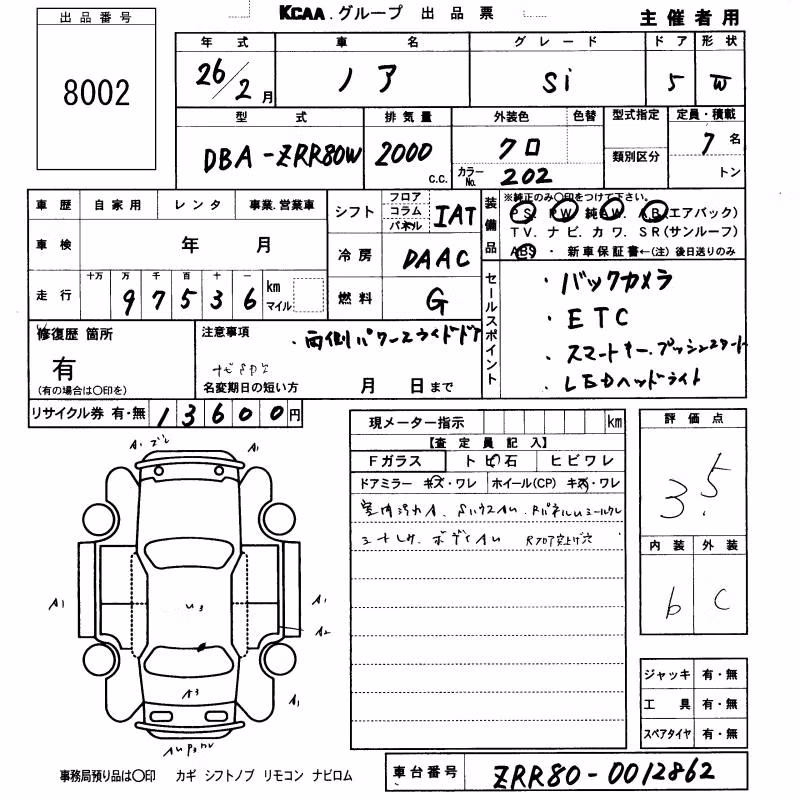 出品番号
8002
KCAA.グループ 出品票
主催者用
年式 車名 グレード ドア 形状
26/2月 ノア Si 5 W
型式 排気量 外装色 色替 型式指定 定員・積載
DBA-ZRR80W 2000 c.c. クロ 類別区分 7名
カラーNo. 202 トン
車歴 自家用 レンタ 事業.営業車
車検 年 月
走行 十万 万 千 百 十 一
97536 km マイル
シフト フロア コラム パネル IAT
冷房 DAAC
燃料 G
装備品
※純正のみ〇印をつけて下さい。
PS. PW. 純AW. AB(エアバック)
TV. ナビ. カワ. SR(サンルーフ)
ABS ・ 新車保証書←(注) 後日送りのみ
セールスポイント
・バックカメラ
・ETC
・スマートキー.プッシュスタート
・LEDヘッドライト
修復歴 箇所
有
(有の場合は〇印を)
注意事項
・両側パワースライドドア
名変期日の短い方 月 日まで
リサイクル券 有・無 13600円
現メーター指示 km
【査定員記入】
Fガラス トビ石 ヒビワレ
ドアミラー キズ・ワレ ホイール(CP) キズ・ワレ
評価点
3.5
内装 外装
b C
A1
A1
A1
A1
A2
U3
A3
A1
ジャッキ 有・無
工具 有・無
スペアタイヤ 有・無
事務局預り品は〇印 カギ シフトノブ リモコン ナビロム
車台番号 ZRR80-0012862